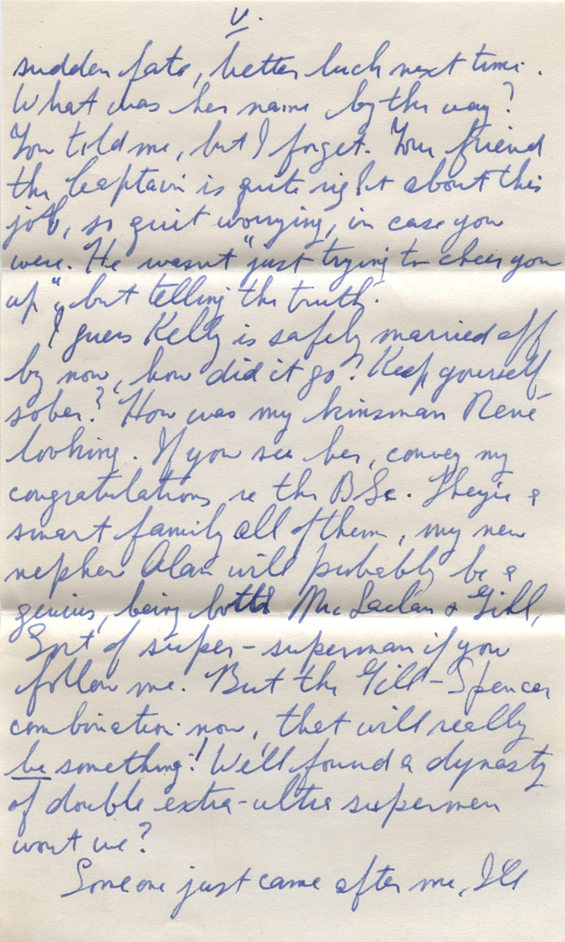 V.
sudden fate, better luck next time.
What was her name by the way?
You told me, but I forget. Your friend
the Captain is quite right about this
job, so quit worrying, in case you
were. He wasn't "just trying to cheer you
up", but telling the truth.
I guess Kelly is safely married off
by now, how did it go? Keep yourself
sober? How was my kinsman René
looking. If you see her, convey my
congratulations re the BSc. They're a
smart family all of them, my new
nephew Alan will probably be a
genius, being both McLaclan & Gill,
Sort of super-superman if you
follow me. But the Gill-Spencer
combination now, that will really
be something! We'll found a dynasty
of double extra-ultra supermen
wont we?
Someone just came after me, I'll